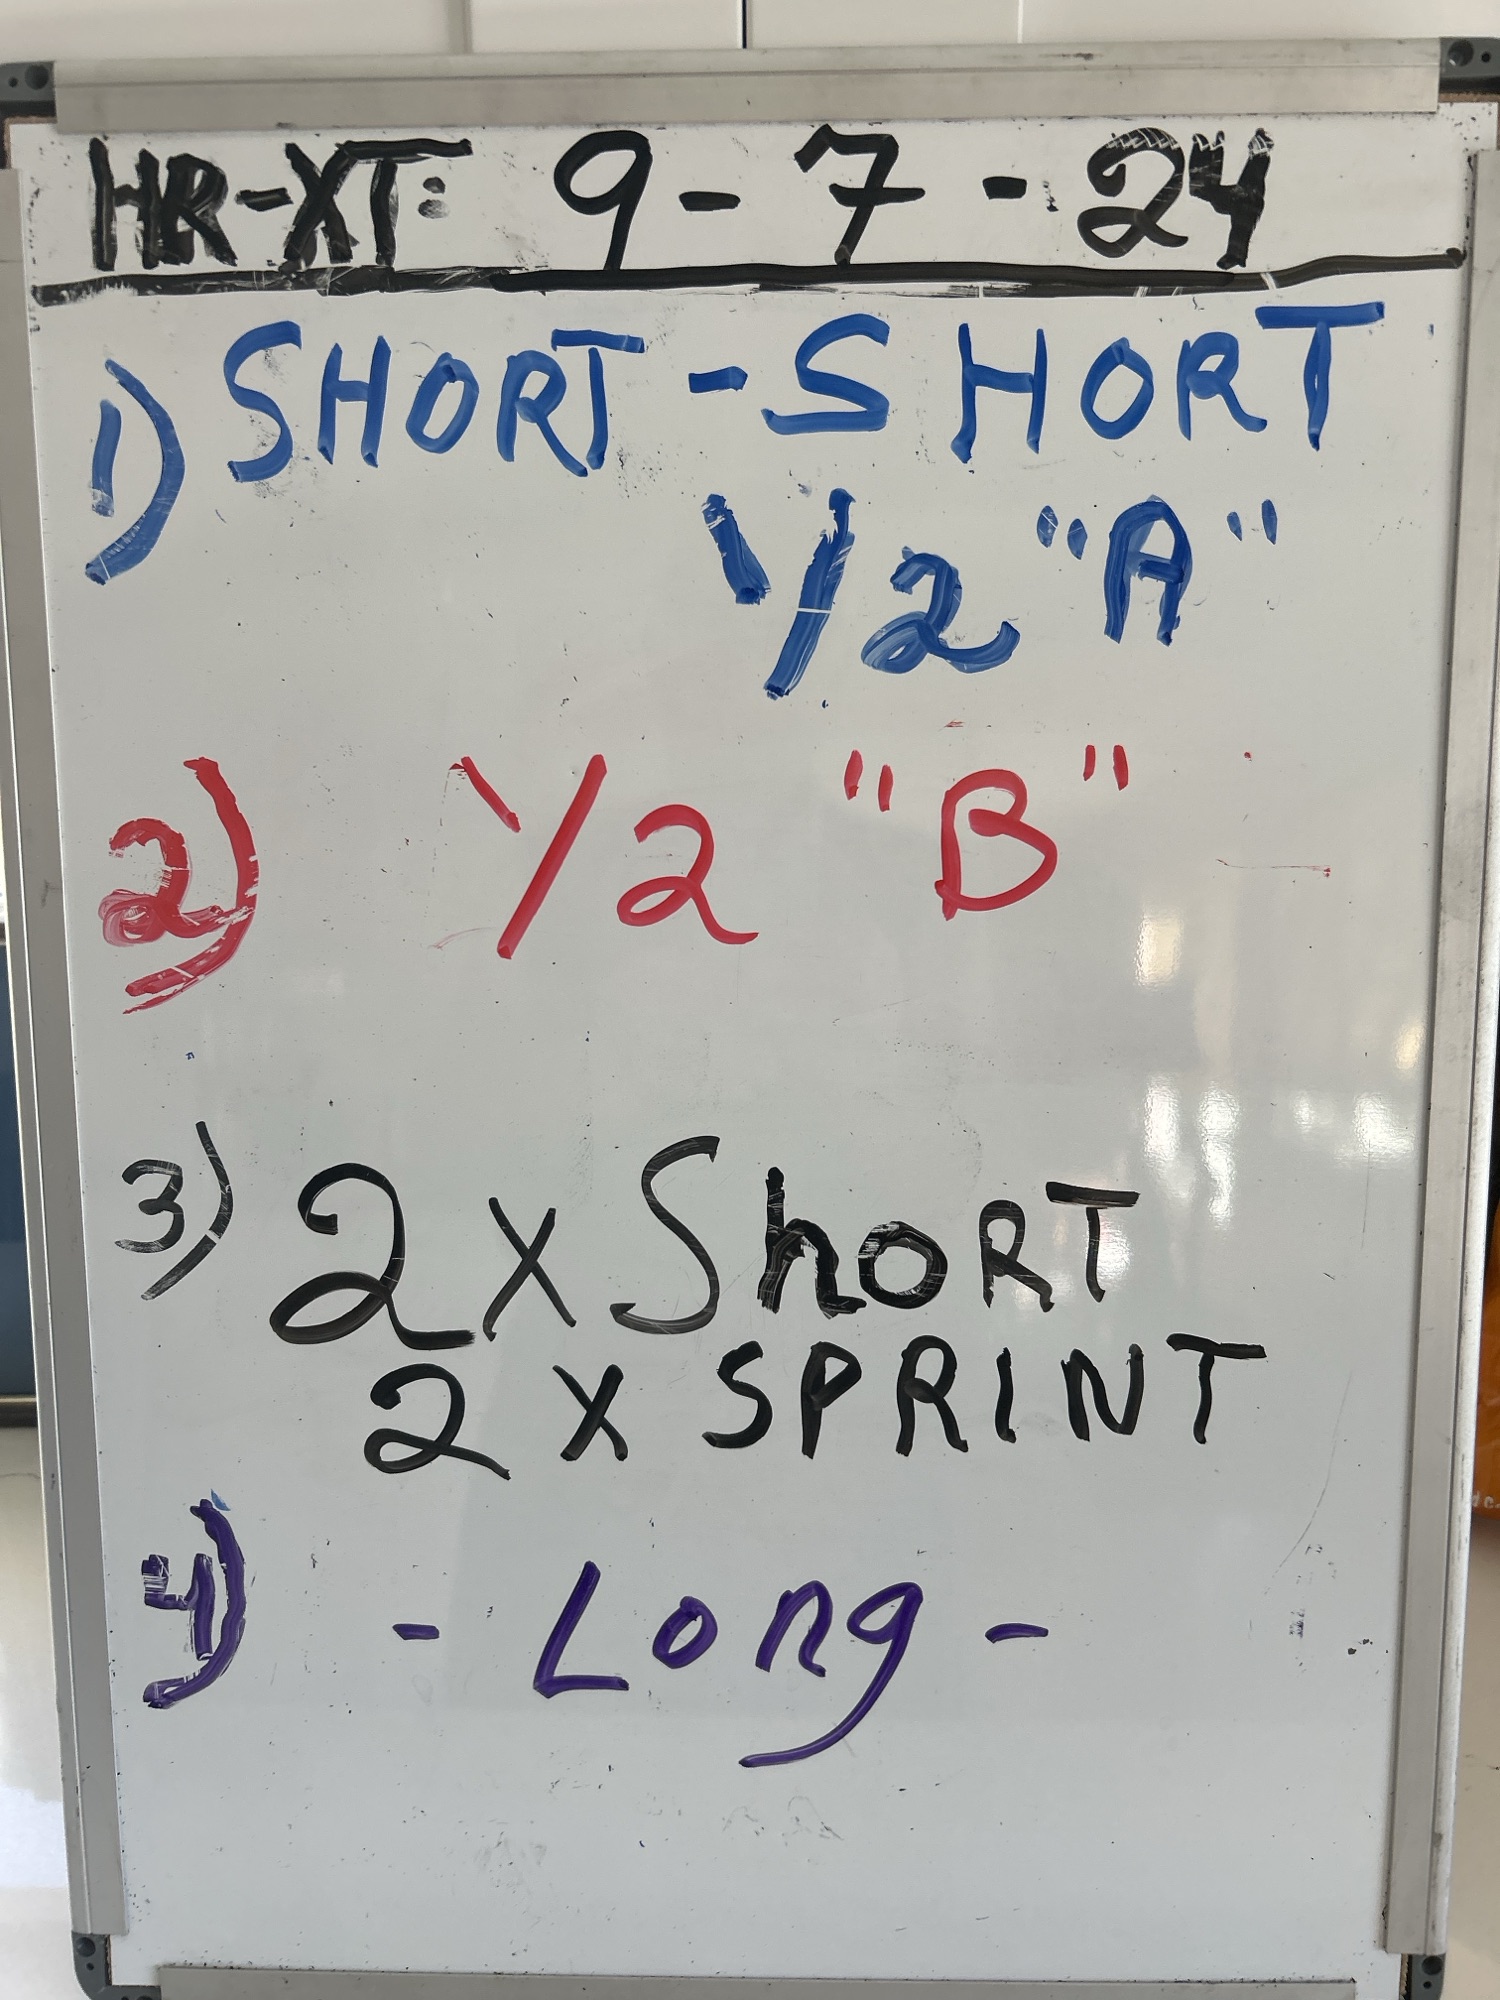 HR-XT: 9-7-24
1) SHORT-SHORT
1/2 "A"
2) 1/2 "B"
3) 2 x ShORT
2 x SPRINT
4) - Long -